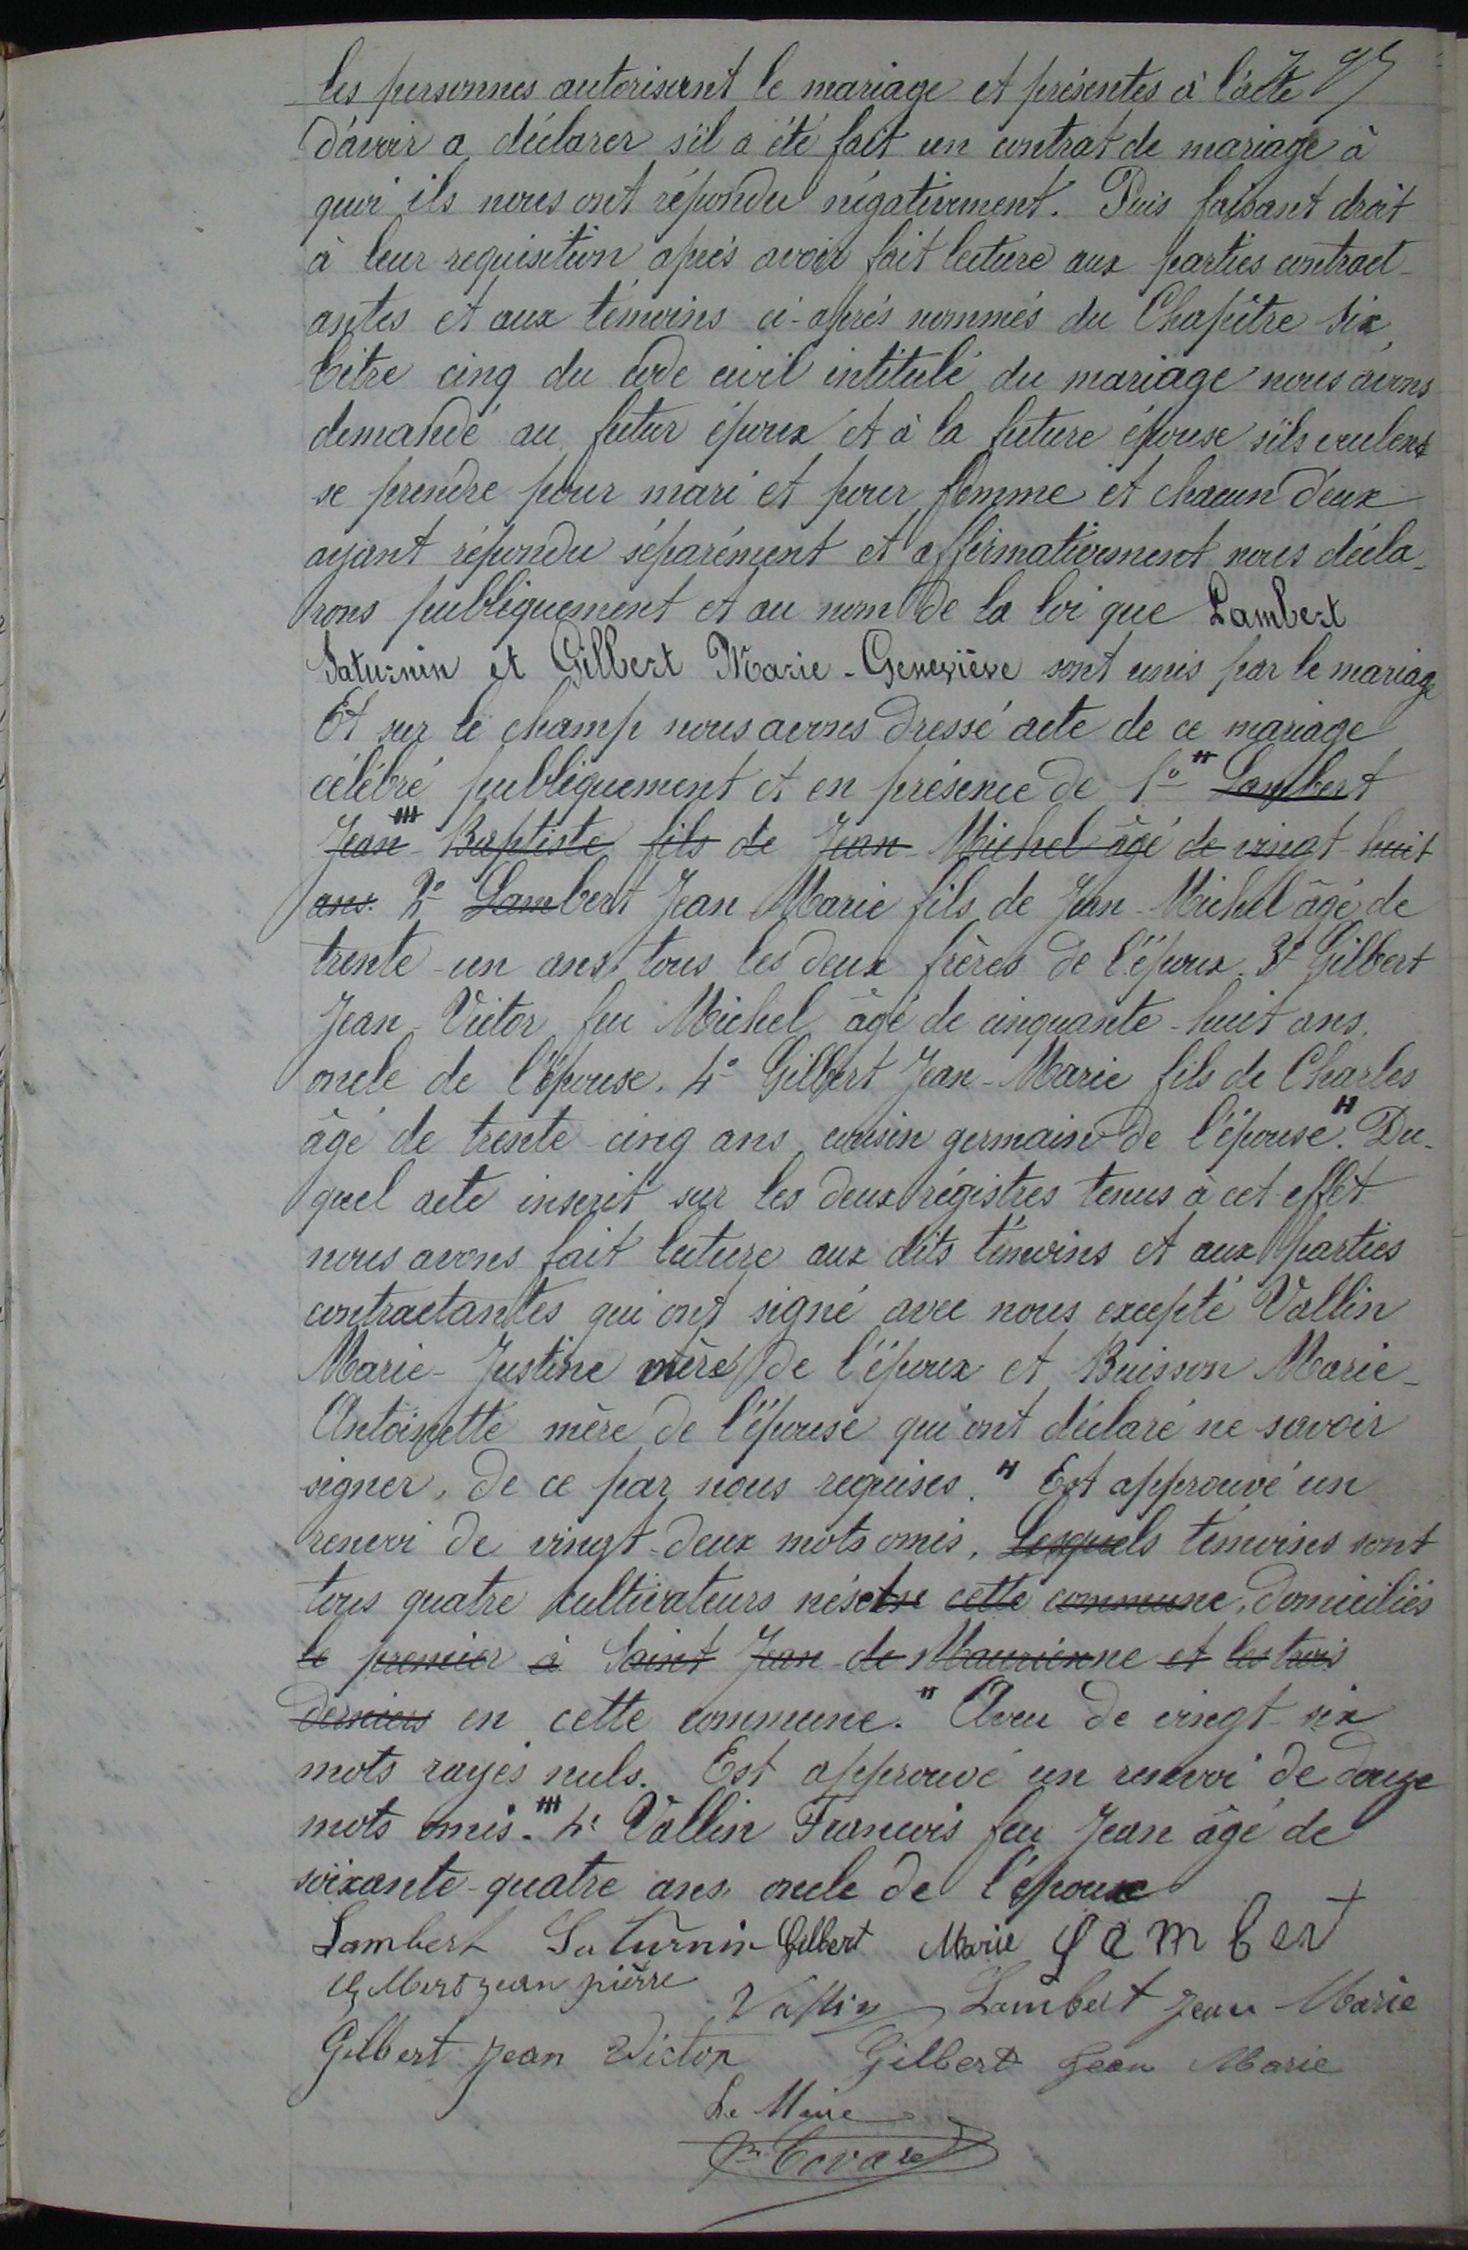 les personnes autorisant le mariage et présentes à l'acte
d'avoir a déclarer s'il a été fait un contrat de mariage à
quoi ils nous ont répondu négativement. Puis faisant droit
à leur requisition après avoir fait lecture aux parties contract-
antes et aux témoins ci-après nommés du Chapître six,
titre cinq du code civil intitulé du mariage nous avons
demandé au futur époux et à la future épouse s'ils veulent
se prendre pour mari et pour femme et chacun d'eux
ayant répondu séparément et affirmativement nous décla-
rons publiquement et au nom de la loi que Lambert
Saturnin et Gilbert Marie-Geneviève sont unis par le mariage
Et sur le champ nous avons dressé acte de ce mariage
célébré publiquement et en présence de 1º Lambert
Jean-Baptiste fils de Jean-Michel âgé de vingt-huit
ans. 2º Lambert Jean Marie fils de Jean-Michel âgé de
trente-un ans, tous les deux frères de l'époux. 3º Gilbert
Jean-Victor feu Michel âgé de cinquante-huit ans,
oncle de l'épouse. 4º Gilbert Jean-Marie fils de Charles
âgé de trente-cinq ans cousin germain de l'épouse. Du-
quel acte inscrit sur les deux régistres tenus à cet effet
nous avons fait lecture aux dits témoins et aux parties
contractantes qui ont signé avec nous excepté Vallin
Marie-Justine mère de l'époux et Buisson Marie-
Antoinette mère de l'épouse qui ont déclaré ne savoir
signer, de ce par nous requises. " Est approuvé un
renvoi de vingt-deux mots omis. Lesquels témoins sont
tous quatre cultivateurs nés cette commune, domiciliés
le premier à Saint Jean-de-Maurienne et les trois
derniers en cette commune. " Aveu de vingt-six
mots rayés nuls. Est approuvé un renvoi de douze
mots omis. 4º Vallin François feu Jean âgé de
soixante-quatre ans oncle de l'époux
Lambert Saturnin Gilbert Marie Lambert
jean pierre Vallin Lambert Jean Marie
Gilbert Jean Victor Gilbert Jean Marie
Le Maire